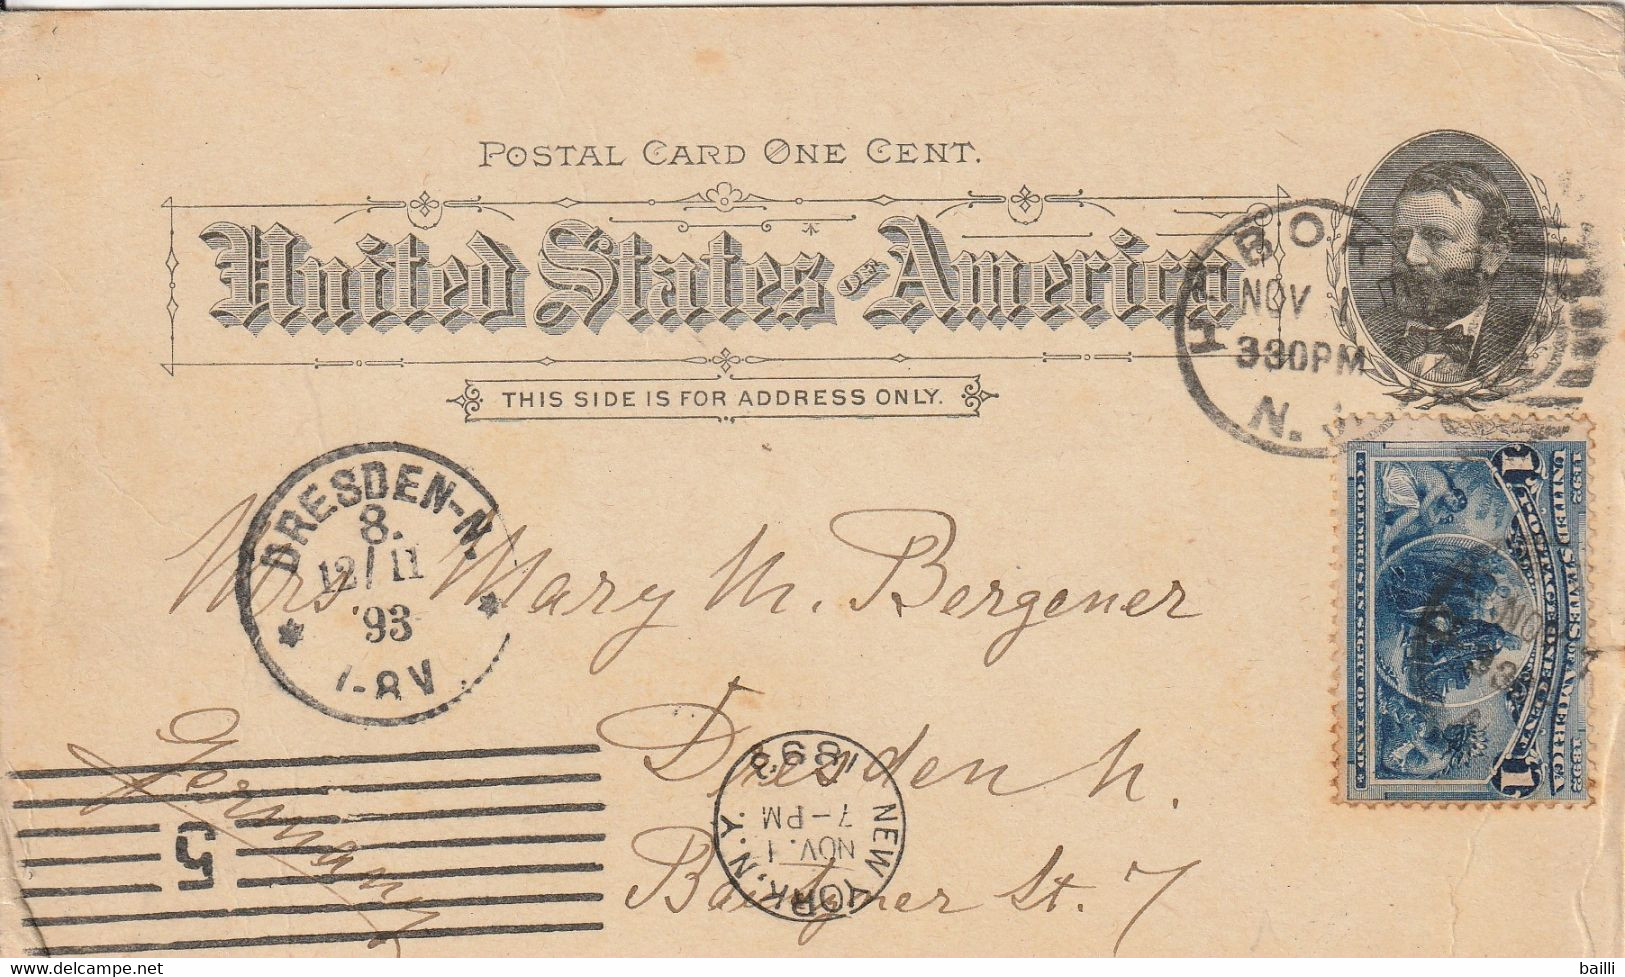 POSTAL CARD ONE CENT.
United States OF America
THIS SIDE IS FOR ADDRESS ONLY.
NOV 1
330PM
N. J.
DRESDEN-N.
8.
12/11
'93
7-8V
Mrs Mary M. Bergener
Dresden N.
Germany
NEW YORK, N.Y.
NOV. 1
7-PM
1893
5
St. 7
1492 UNITED STATES OF AMERICA 1892
1 POSTAGE ONE CENT 1
COLUMBUS IN SIGHT OF LAND
NOV
bailli